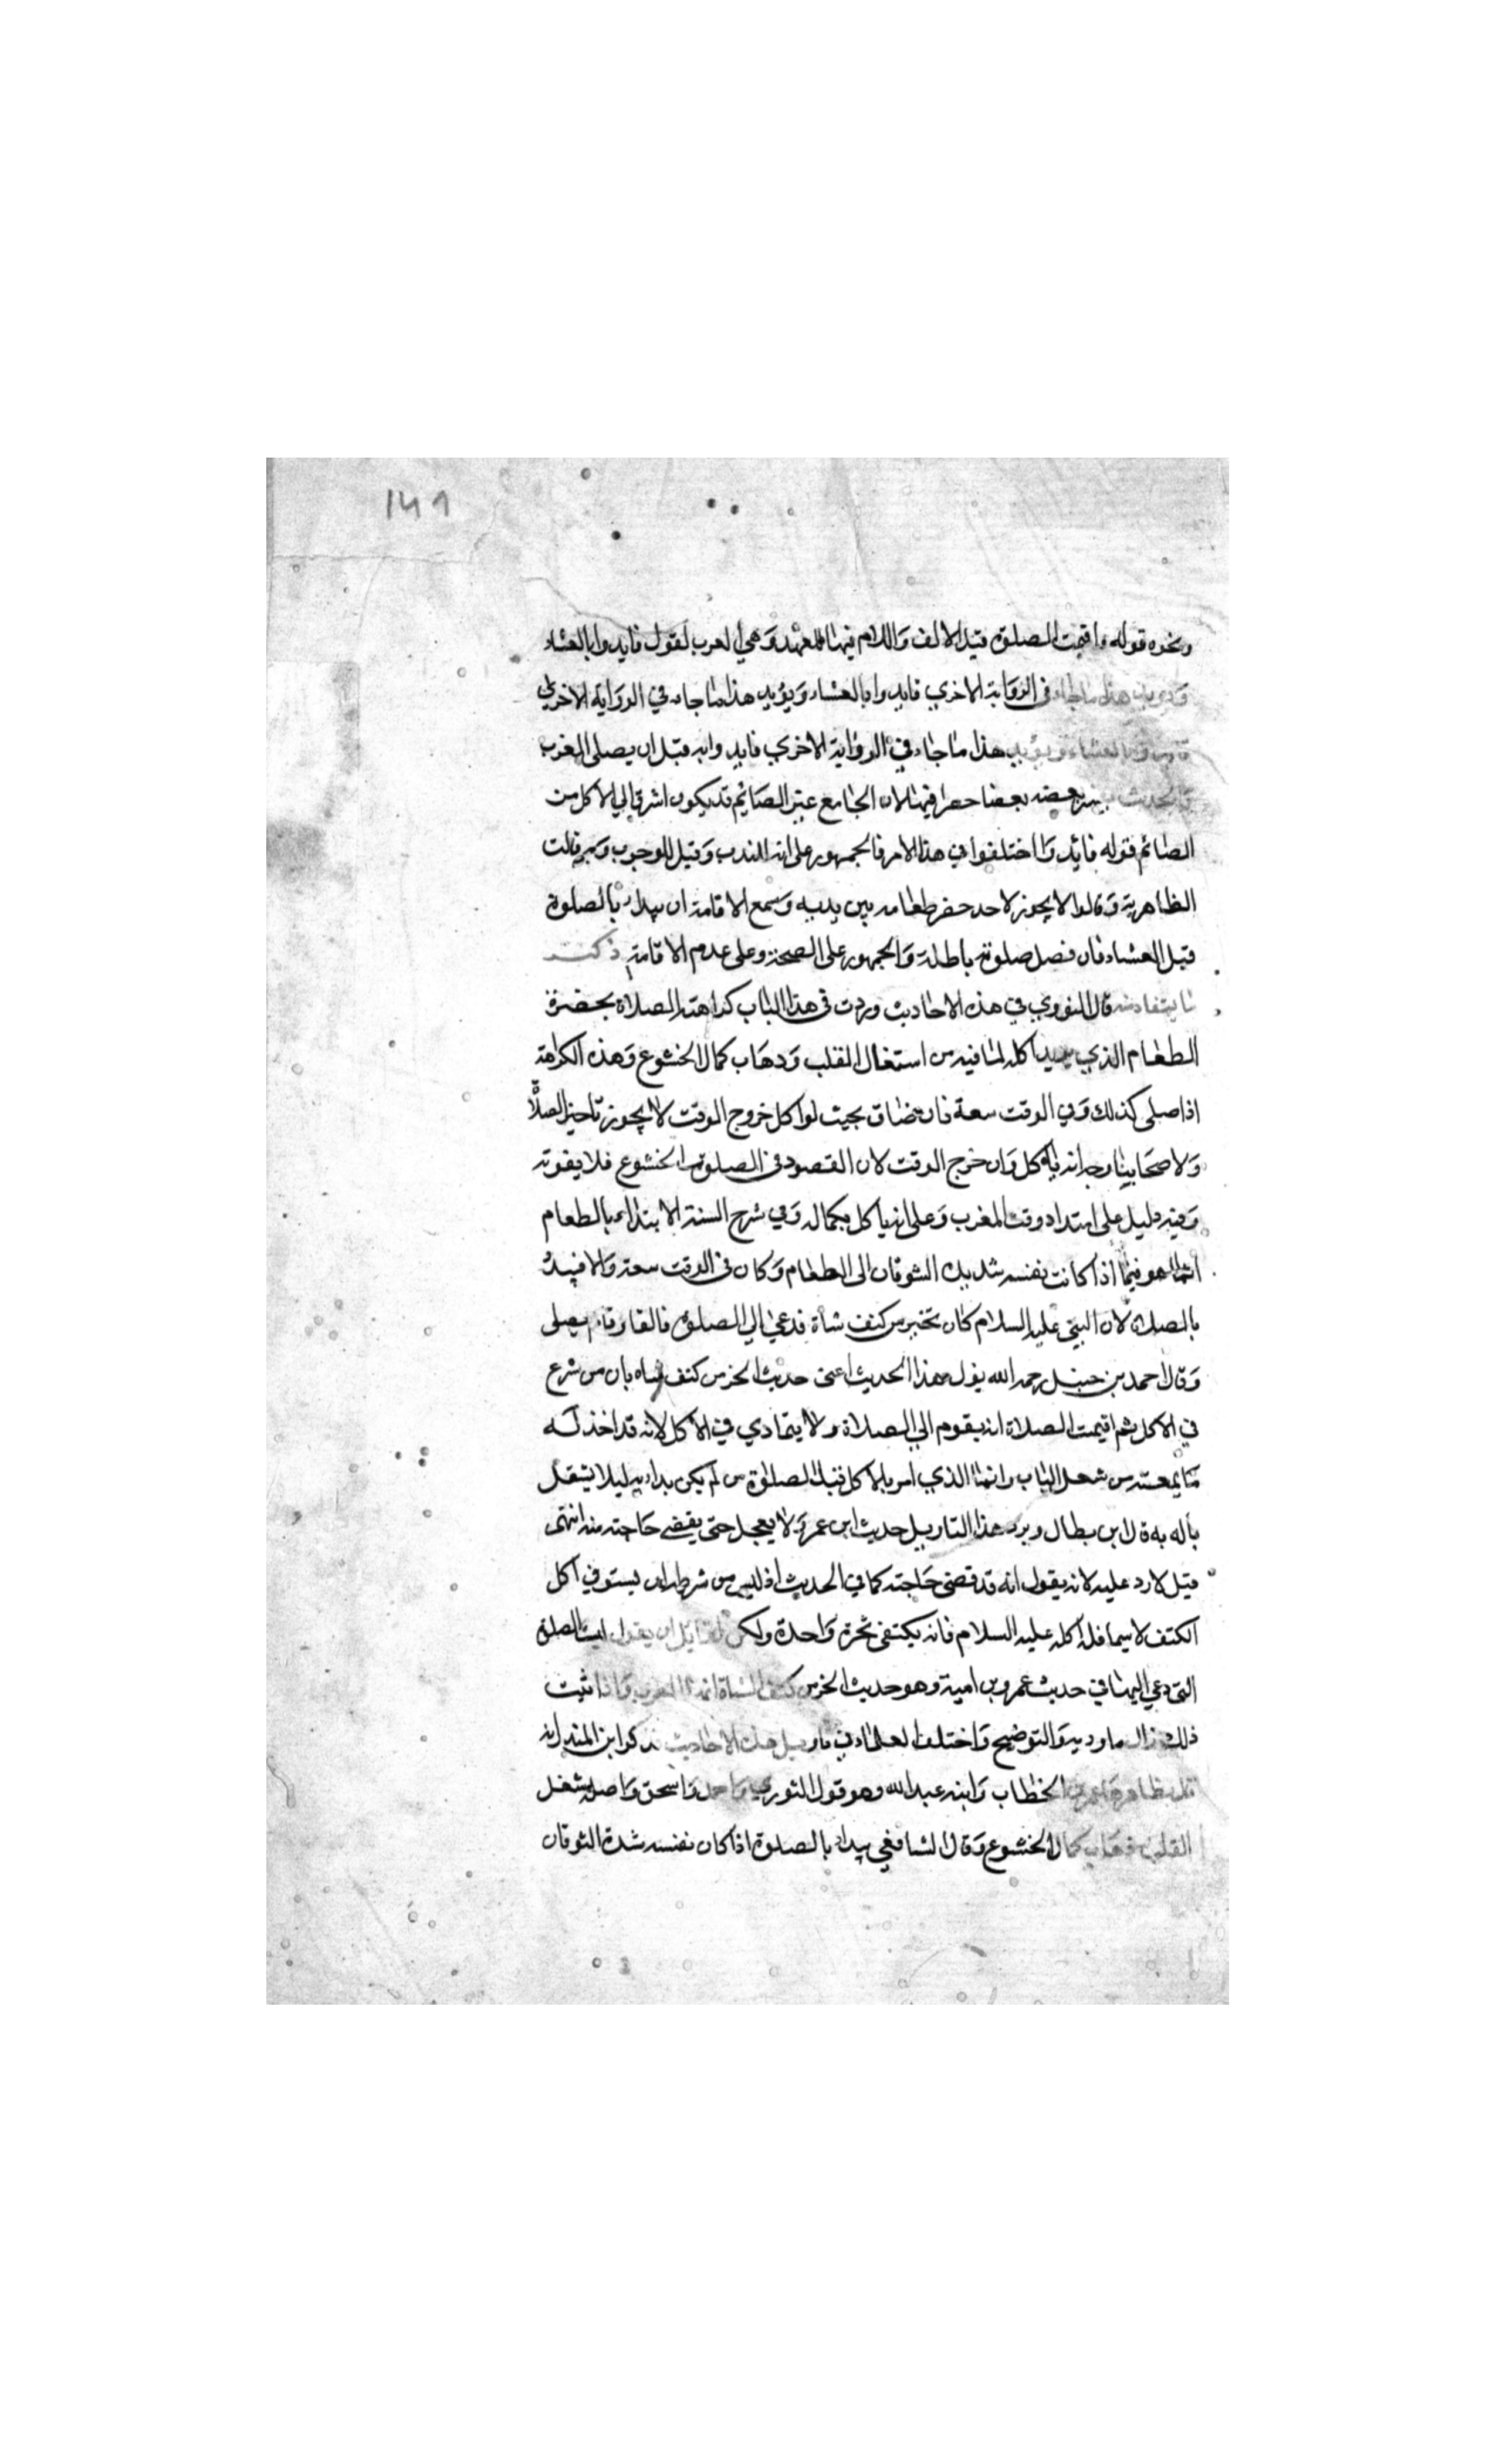 ١٤٦
ونحوه قوله واقيمت الصلوة قيل الالف واللام فيها للعهد وهي المغرب لقوله فابدوا بالعشاء
هذا ما جاء في الرواية الاخري فابدوا بالعشاء ويؤيد هذا ما جاء في الرواية الاخري
بالعشاء ويؤيد هذا ما جاء في الرواية الاخري فابدوا به قبل ان يصلى المغرب
والحديث يفسر بعضه بعضا فيها لان الجامع غير الصائم قد يكون اشوق الي الاكل من
الصائم قوله فابدوا اختلفوا في هذا الامر فالجمهور على انه للندب وقيل للوجوب وبه قالت
الظاهرية وقالوا لا يجوز لاحد حضر طعامه بين يديه وسمع الاقامة ان يبداء بالصلوة
قبل العشاء فان فصل صلوته باطلة والجمهور على الصحة وعلى عدم الاقامة
ما يستفاد منه قال النووي في هذه الاحاديث وردت في هذا الباب كراهة الصلاة بحضرة
الطعام الذي يريد اكله لما فيه من اشتغال القلب وذهاب كمال الخشوع وهذه الكراهة
اذا صلى كذلك وفي الوقت سعة فان ضاق بحيث لو اكل خروج الوقت لا يجوز تاخير الصلاة
ولاصحابنا وجه انه ياكل وان خرج الوقت لان المقصود في الصلوة الخشوع فلا يفوته
وفيه دليل على امتداد وقت المغرب وعلى انه ياكل بكماله وفي شرح السنة الابتداء بالطعام
انما هو فيما اذا كانت نفسه شديدة الشوقان الى الطعام وكان في الوقت سعة والا فيبدء
بالصلاة لان النبي عليه السلام كان يحتز من كتف شاة فدعي الي الصلوة فالقا وقام يصلى
وقال احمد بن حنبل رحمه الله يؤل هذا الحديث اعنى حديث الحز من كتف شاه بان من شرع
في الاكل ثم اقيمت الصلاة انه يقوم الي الصلاة ولا يتمادي في الاكل لانه قد اخذ له
ما يمعنه من شغل الباب وانما الذي امر بالاكل قبل الصلوة من لم يكن بدا به ليلا يشغل
باله به قال ابن بطال ويرد هذا التاويل حديث ابن عمر ولا يعجل حتى يقضي حاجته منه انتهى
قيل لا رد عليه لانه يقول انه قد قضى حاجته كما في الحديث اذ ليس من شرطه ان يستوفي اكل
الكتف لا سيما قلة اكله عليه السلام فانه يكتفى بحزة واحدة ولكن لقايل ان يقول ليست الصلوة
التي دعي اليها في حديث عمرو بن امية وهو حديث الحز من كتف الشاة انها المغرب واذا ثبت
ذلك زال ما وديه والتوضيح واختلف العلماء في تاويل هذه الاحاديث فذكر ابن المنذر انه
قال بظاهرها عمر بن الخطاب وابنه عبد الله وهو قول الثوري واحمد واسحق واصله شغل
القلب وذهاب كمال الخشوع وقال الشافعي يبداء بالصلوة اذا كان نفسه شدة التوقان